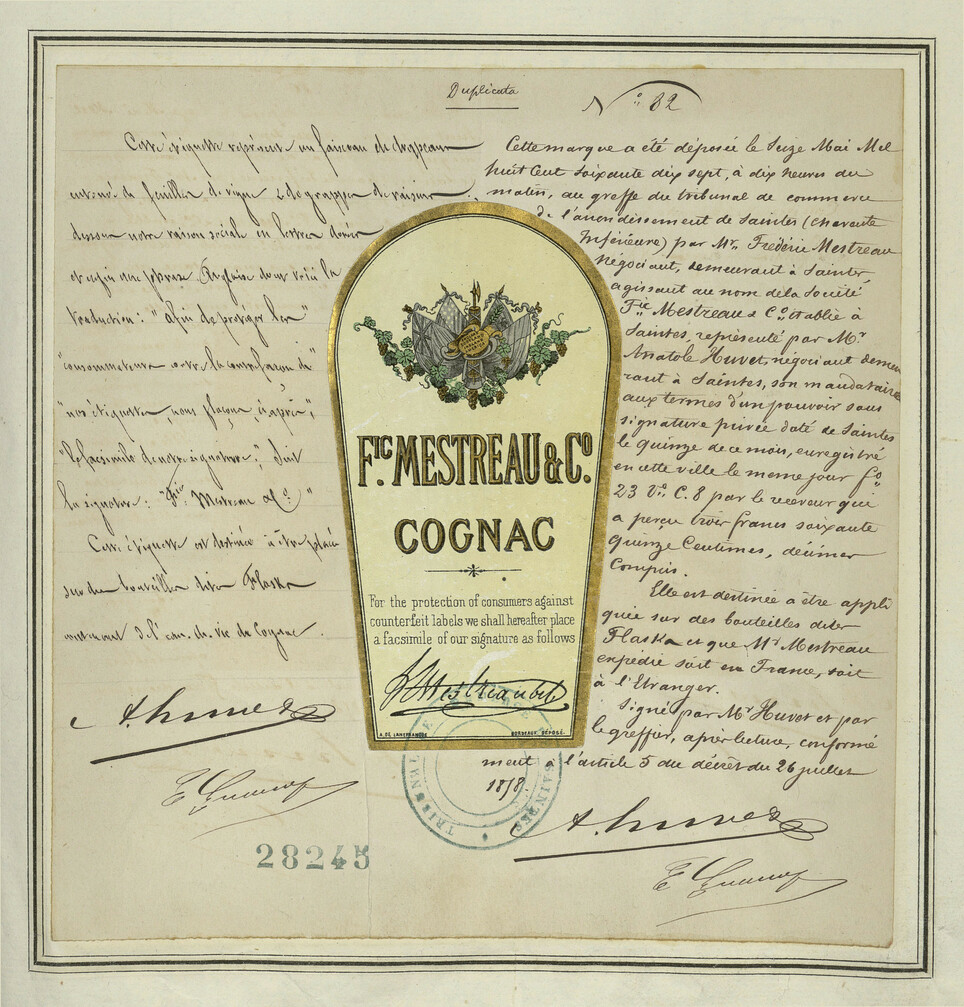 Duplicata
N° 82
Cette étiquette représente un faisceau de drapeaux
entouré de feuilles de vigne & de grappes de raisin
dessous notre raison sociale en lettres dorées
et enfin une phrase Anglaise dont voici la
traduction: "afin de protéger les"
"consommateurs contre la contrefaçon de"
"nos étiquettes nous plaçons ci après",
"le facsimile de notre signature"; Suit
la signature: "Fric Mestreau & Co"
Cette étiquette est destinée à être placée
sur des bouteilles dites Flasks
contenant de l'eau de vie de Cognac.
A. Huvet
Cette marque a été déposée le Seize Mai Mil
huit Cent soixante dix sept, à dix heures du
matin, au greffe du tribunal de commerce
de l'arrondissement de Saintes (Charente
Inférieure) par Mr. Frédéric Mestreau
Négociant, demeurant à Saintes
agissant au nom de la Société
Fic Mestreau & Co. établie à
Saintes, représenté par Mr
Anatole Huvet, négociant demeu
rant à Saintes, son mandataire
aux termes d'un pouvoir sous
signature privée daté de Saintes
le quinze de ce mois, enregistré
en cette ville le même jour fo
23 Vo. C. 8 par le receveur qui
a perçu trois francs soixante
quinze Centimes, décimes
Compris.
Elle est destinée à être appli
quée sur des bouteilles dites
Flasks et que Mr Mestreau
expédie soit en France, soit
à l'Etranger.
Signé par Mr Huvet et par
le greffier, après lecture, conformé
ment à l'article 5 du décret du 26 juillet
1858.
A. Huvet
FIC. MESTREAU & CO.
COGNAC
For the protection of consumers against
counterfeit labels we shall hereafter place
a facsimile of our signature as follows
A. DE LANEFRANQUE BORDEAUX DÉPOSÉ.
TRIBUNAL DE COMMERCE
SAINTES
28245